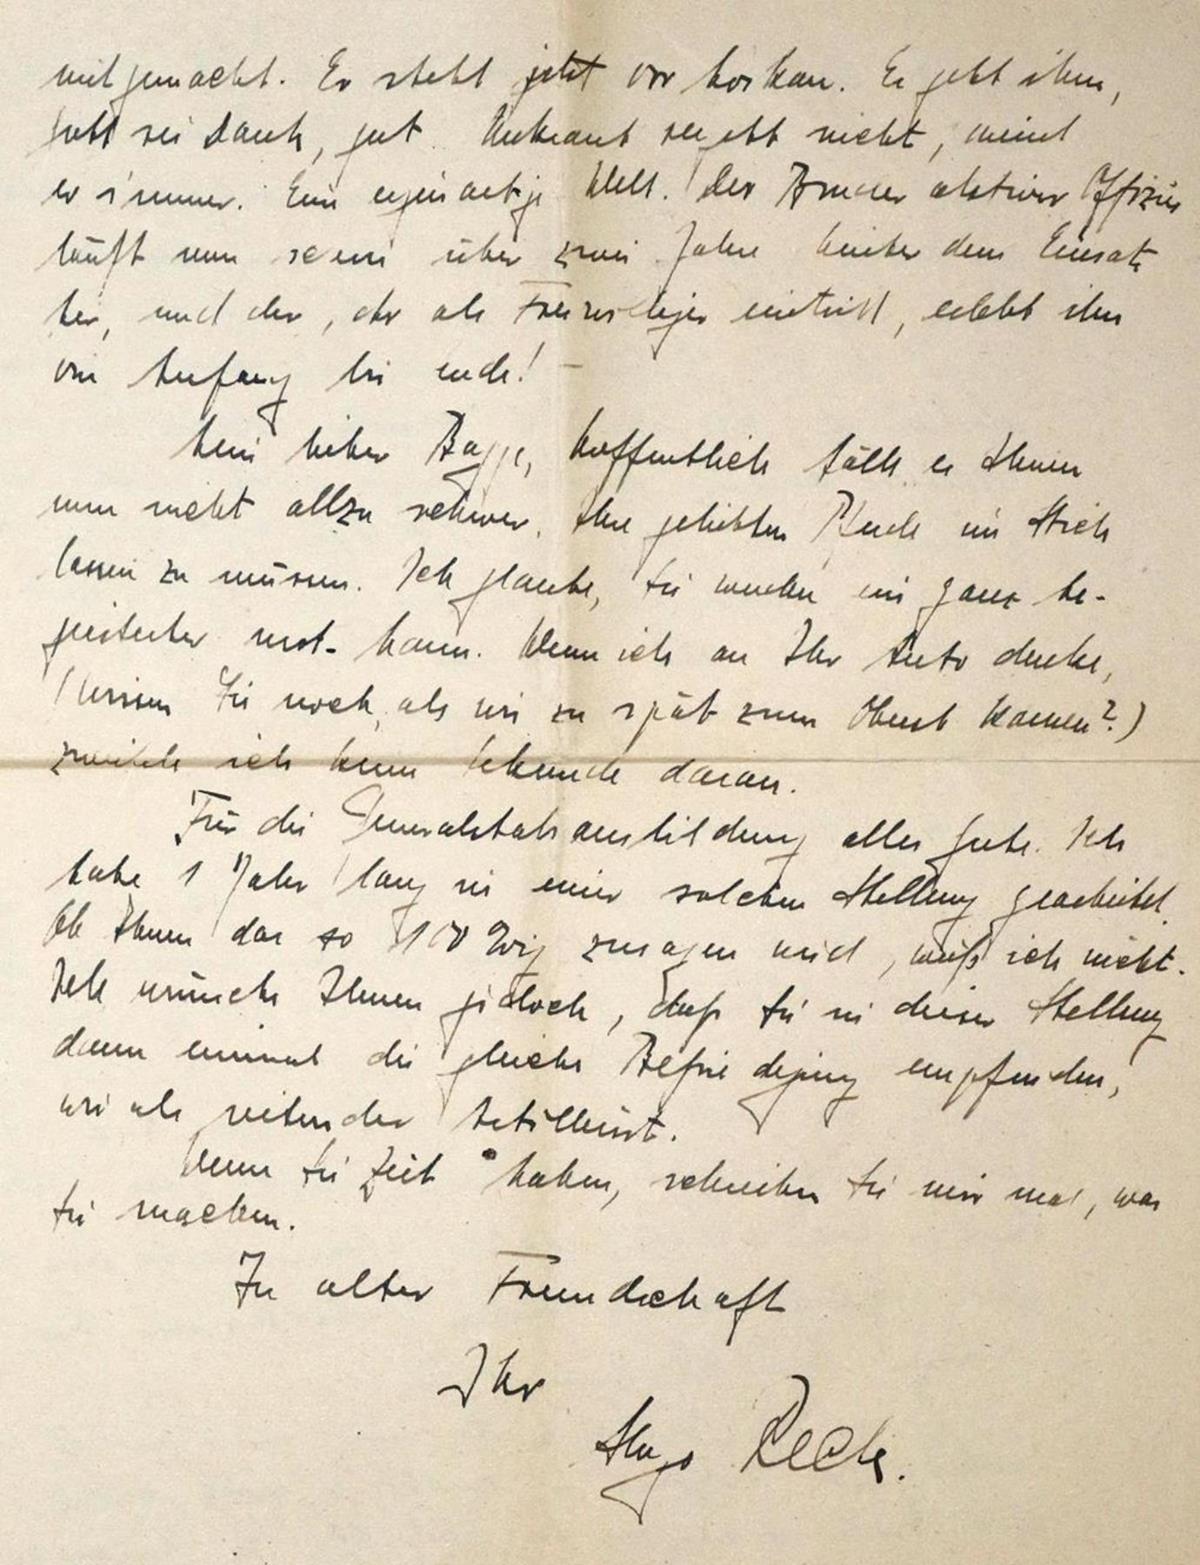 mitgemacht. Er steht jetzt vor Moskau. Es geht ihm,
Gott sei Dank, gut. Unkraut vergeht nicht, meint
er immer. Eine eigenartige Welt. Der Bruder aktiver Offizier
läuft nun schon über zwei Jahre hinter dem Einsatz
her, und der, der als Freiwilliger eintritt, erlebt ihn
von Anfang bis ende! –
Mein lieber Bagge, hoffentlich fällt es Ihnen
nun nicht allzu schwer, Ihre geliebten Pferde im Stich
lassen zu müssen. Ich glaube, Sie werden ein ganz be-
geisterter mot. Mann. Wenn ich an Ihr Auto denke,
(wissen Sie noch, als wir zu spät zum Oberst kamen?)
zweifele ich keine Sekunde daran.
Für die Generalstabsausbildung alles Gute. Ich
habe 1 Jahr lang in einer solchen Stellung gearbeitet.
Ob Ihnen das so 100 %ig zusagen wird, weiß ich nicht.
Ich wünsche Ihnen jedoch, daß Sie in dieser Stellung
dann einmal die gleiche Befriedigung empfinden,
wie als reitender Artillerist.
Wenn Sie Zeit haben, schreiben Sie mir mal, was
Sie machen.
In alter Freundschaft
Ihr
Hugo